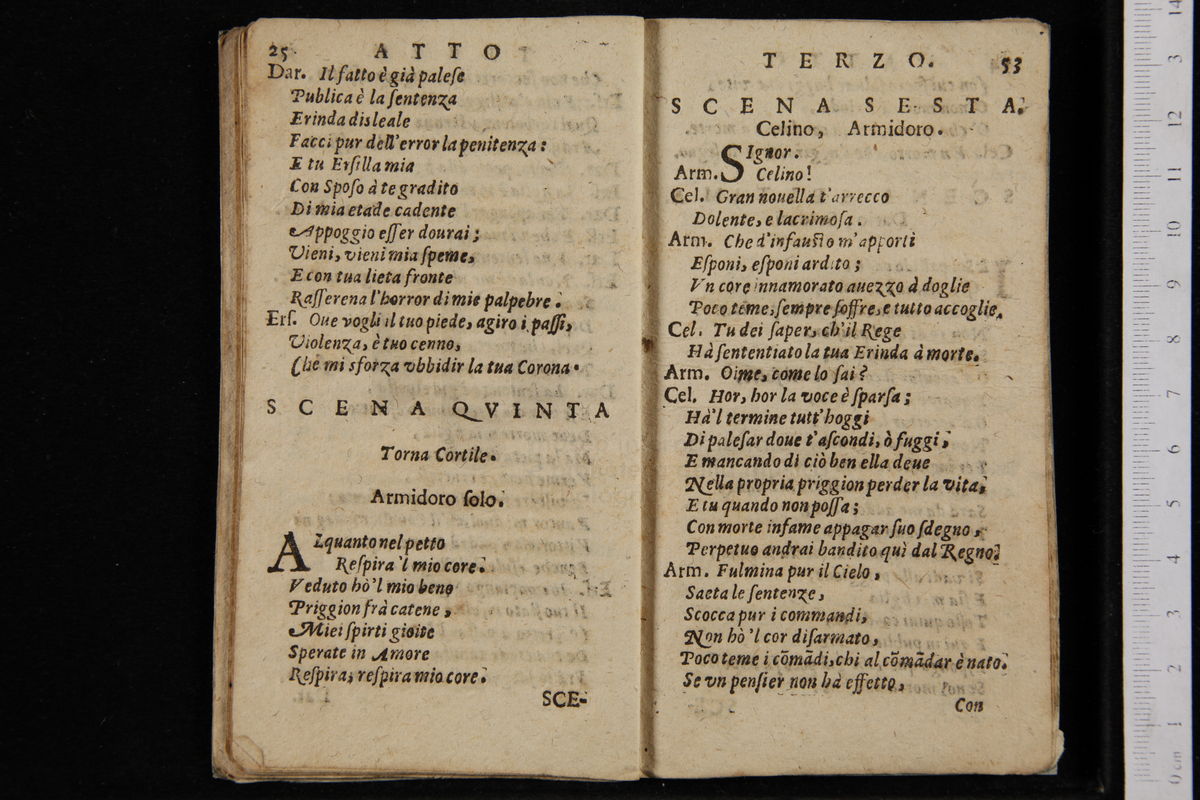 25 ATTO
Dar. Il fatto è già paleſe
Publica è la ſentenza
Erinda disleale
Facci pur dell'error la penitenza:
E tu Erſilla mia
Con Spoſo à te gradito
Di mia etade cadente
Appoggio eſſer dourai;
Vieni, vieni mia ſpeme,
E con tua lieta fronte
Raſſerena l'horror di mie palpebre.
Erſ. Oue vogli il tuo piede, agiro i paſſi,
Violenza, è tuo cenno,
Che mi sforza vbbidir la tua Corona.
SCENA QVINTA
Torna Cortile.
Armidoro ſolo.
ALquanto nel petto
Reſpira 'l mio core.
Veduto hò 'l mio bene
Priggion frà catene,
Miei ſpirti gioite
Sperate in Amore
Reſpira, reſpira mio core.
SCE-
TERZO. 53
SCENA SESTA.
Celino, Armidoro.
SIgnor.
Arm. Celino!
Cel. Gran nouella t'arrecco
Dolente, e lacrimoſa.
Arm. Che d'infauſto m'apporti
Eſponi, eſponi ardito;
Vn core innamorato auezzo à doglie
Poco teme, ſempre ſoffre, e tutto accoglie.
Cel. Tu dei ſaper, ch'il Rege
Hà ſententiato la tua Erinda à morte.
Arm. Oime, come lo ſai?
Cel. Hor, hor la voce è ſparſa;
Hà'l termine tutt'hoggi
Di paleſar doue t'aſcondi, ò fuggi;
E mancando di ciò ben ella deue
Nella propria priggion perder la vita;
E tu quando non poſſa;
Con morte infame appagar ſuo ſdegno,
Perpetuo andrai bandito quì dal Regno.
Arm. Fulmina pur il Cielo,
Saeta le ſentenze,
Scocca pur i commandi,
Non hò 'l cor diſarmato,
Poco teme i cōmādi, chi al cōmādar è nato.
Se vn penſier non hà effetto,
Con